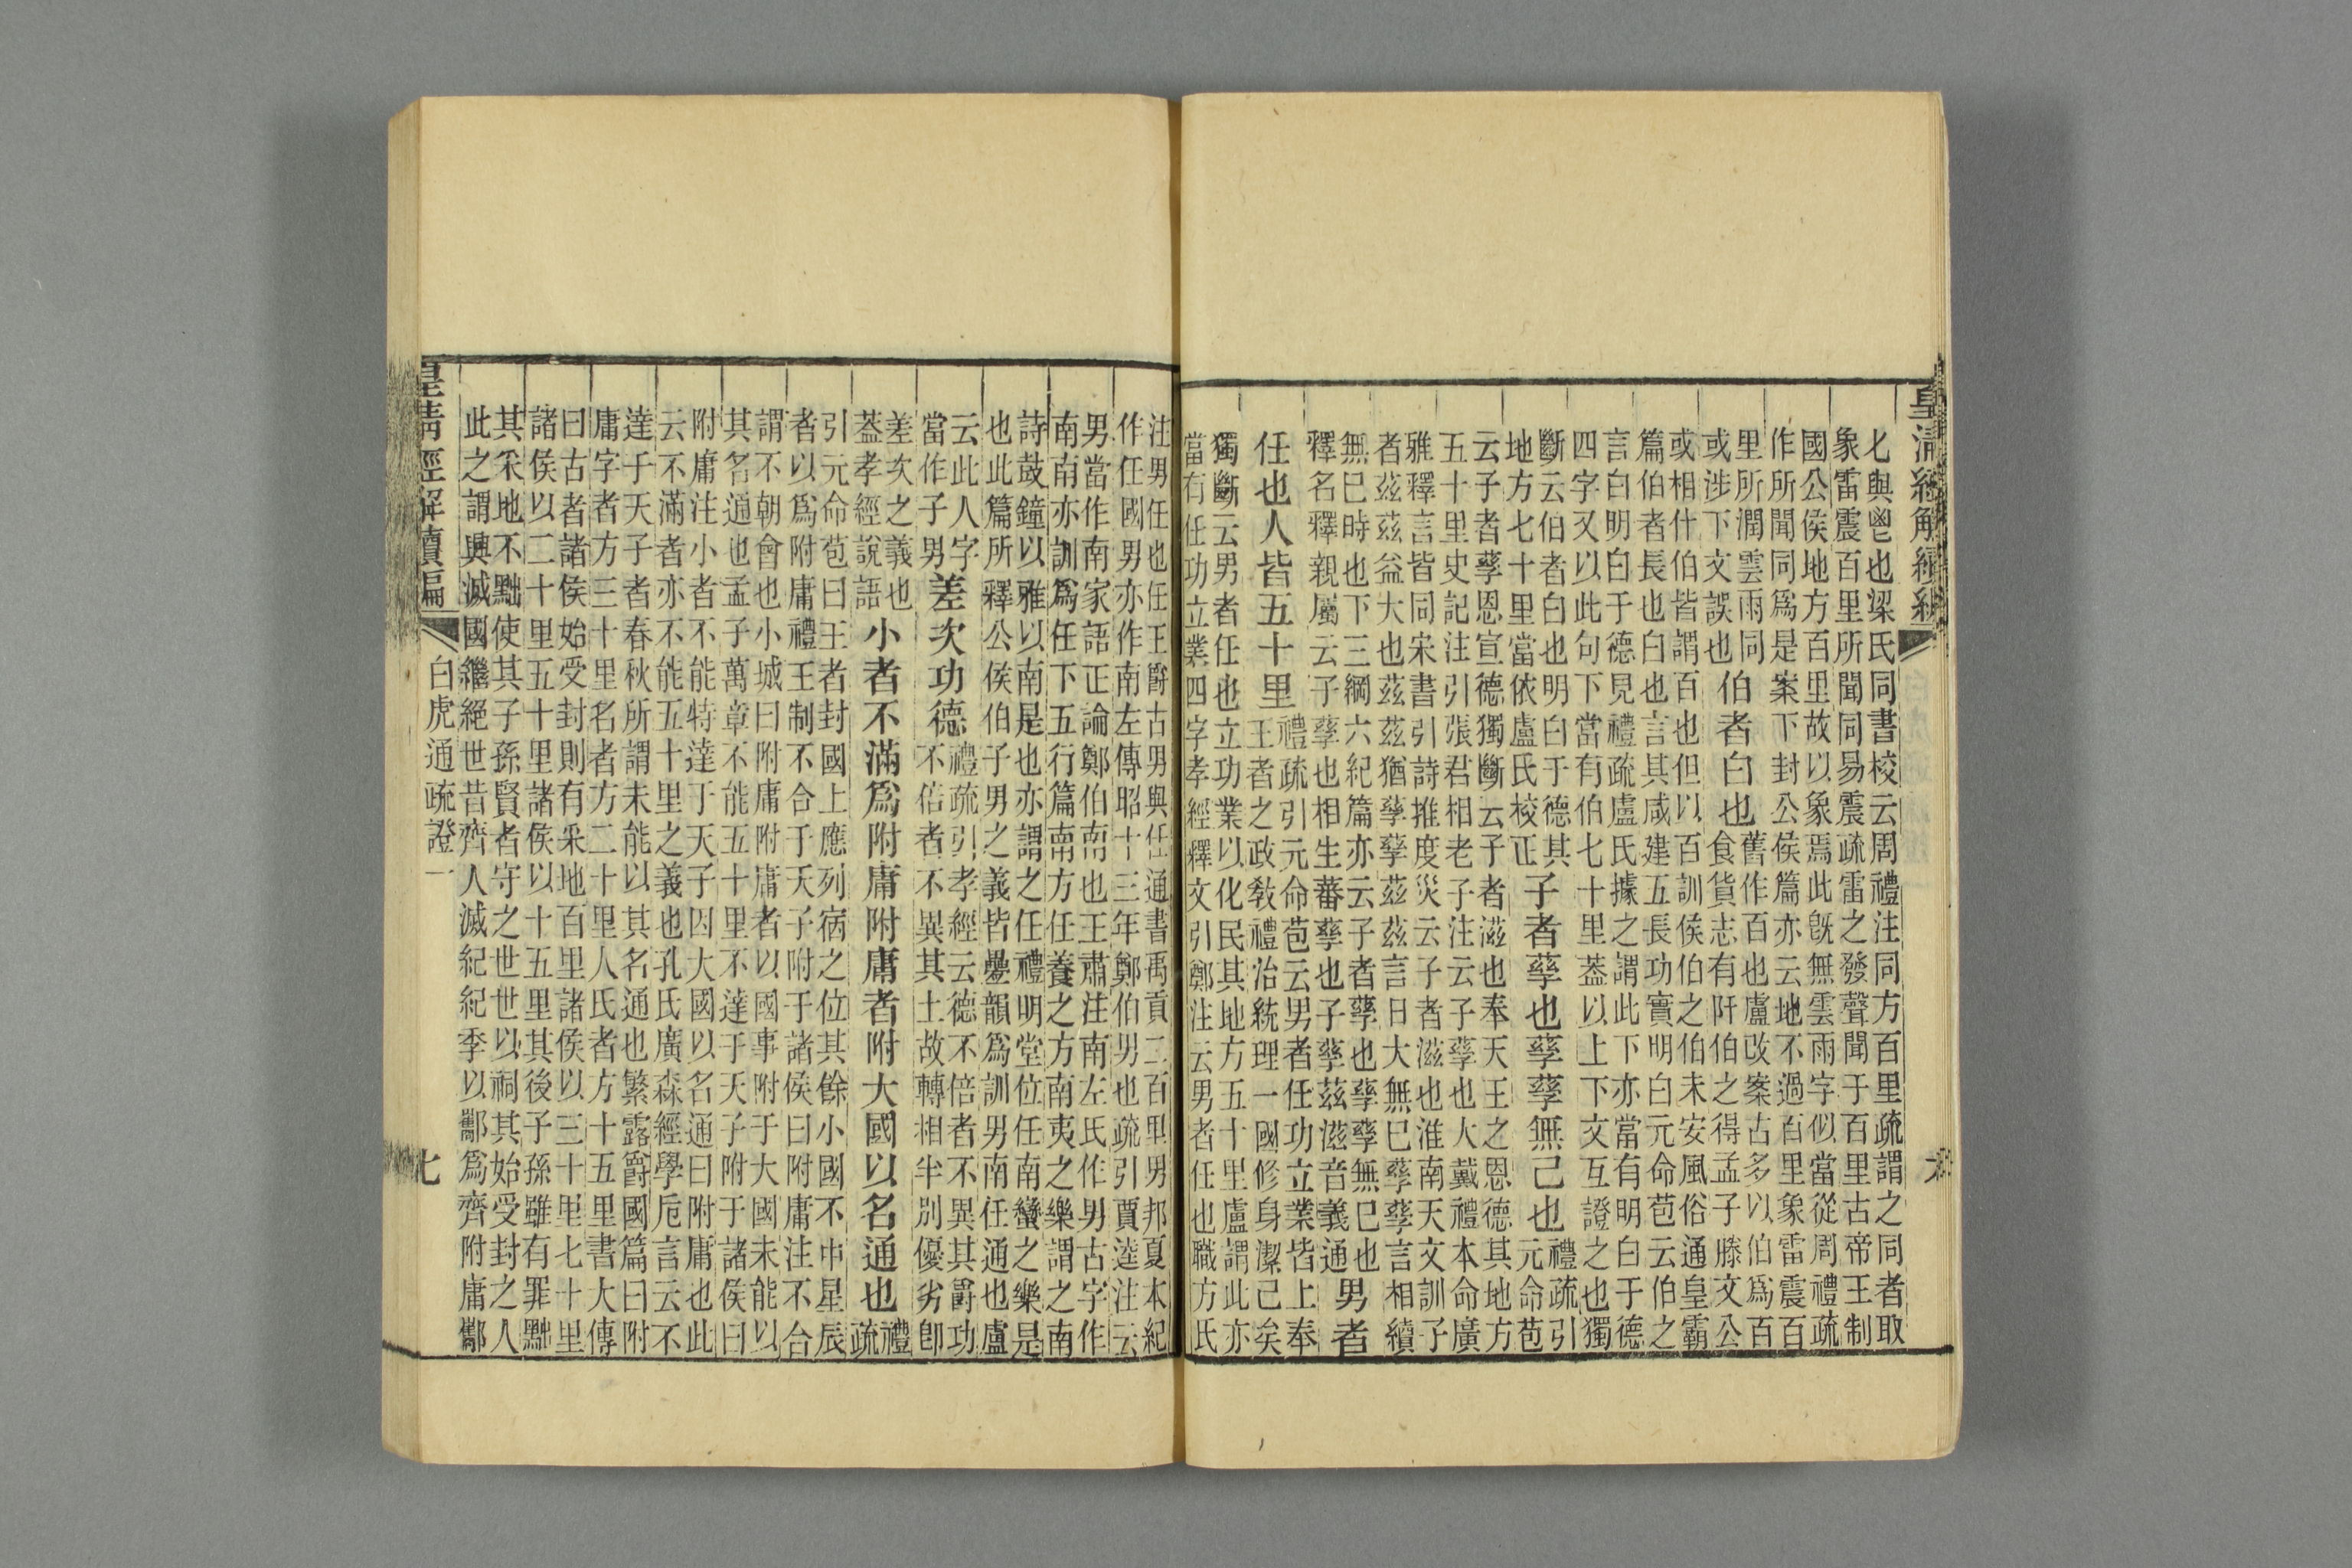 皇清經解續編
匕與鬯也梁氏同書校云周禮注同方百里疏謂之同者取
象雷震百里所聞同易震疏雷之發聲聞于百里古帝王制
國公侯地方百里故以象焉此旣無雲雨字似當從周禮疏
作所聞同爲是案下封公侯篇亦云地不過百里象雷震百
里所潤雲雨同
或涉下文誤也
伯者白也
舊作百也盧改案古多以伯爲百
食貨志有阡伯之得孟子滕文公
或相什伯皆謂百也但以百訓侯伯之伯未安風俗通皇霸
篇伯者長也白也言其咸建五長功實明白元命苞云伯之
言白明白于德見禮疏盧氏據之謂此下亦當有明白于德
四字又以此句下當有伯七十里蓋以上下文互證之也獨
斷云伯者白也明白于德其
地方七十里當依盧氏校正
子者孳也孳孳無己也
禮疏引
元命苞
云子者孳恩宣德獨斷云子者滋也奉天王之恩德其地方
五十里史記注引張君相老子注云子孳也大戴禮本命廣
雅釋言皆同宋書引詩推度災云子者滋也淮南天文訓子
者茲茲益大也茲茲猶孳孳茲茲言日大無巳孳孳言相續
無巳時也下三綱六紀篇亦云子者孳也孳孳無巳也
釋名釋親屬云子孳也相生蕃孳也子孳茲滋音義通
男者
任也人皆五十里
禮疏引元命苞云男者任功立業皆上奉
王者之政敎禮治統理一國修身潔己矣
獨斷云男者任也立功業以化民其地方五十里盧謂此亦
當有任功立業四字孝經釋文引鄭注云男者任也職方氏
注男任也任王爵古男與任通書禹貢二百里男邦夏本紀
作任國男亦作南左傳昭十三年鄭伯男也疏引賈逵注云
男當作南家語正論鄭伯南也王肅注南左氏作男古字作
南南亦訓爲任下五行篇南方任養之方南夷之樂謂之南
詩鼓鐘以雅以南是也亦謂之任禮明堂位任南蠻之樂是
也此篇所釋公侯伯子男之義皆疊韻爲訓男南任通也盧
云此人字
當作子男
差次功德
禮疏引孝經云德不倍者不異其爵功
不倍者不異其土故轉相半別優劣卽
差次之義也
蓋孝經說語
小者不滿爲附庸附庸者附大國以名通也
禮
疏
引元命苞曰王者封國上應列宿之位其餘小國不中星辰
者以爲附庸禮王制不合于天子附于諸侯曰附庸注不合
謂不朝會也小城曰附庸附庸者以國事附于大國未能以
其名通也孟子萬章不能五十里不達于天子附于諸侯曰
附庸注小者不能特達于天子因大國以名通曰附庸也此
云不滿者亦不能五十里之義也孔氏廣森經學卮言云不
達于天子者春秋所謂未能以其名通也繁露爵國篇曰附
庸字者方三十里名者方二十里人氏者方十五里書大傳
曰古者諸侯始受封則有采地百里諸侯以三十里七十里
諸侯以二十里五十里諸侯以十五里其後子孫雖有罪黜
其采地不黜使其子孫賢者守之世世以祠其始受封之人
此之謂興滅國繼絕世昔齊人滅紀紀季以酅爲齊附庸酅
皇清經解續編
白虎通疏證一
七